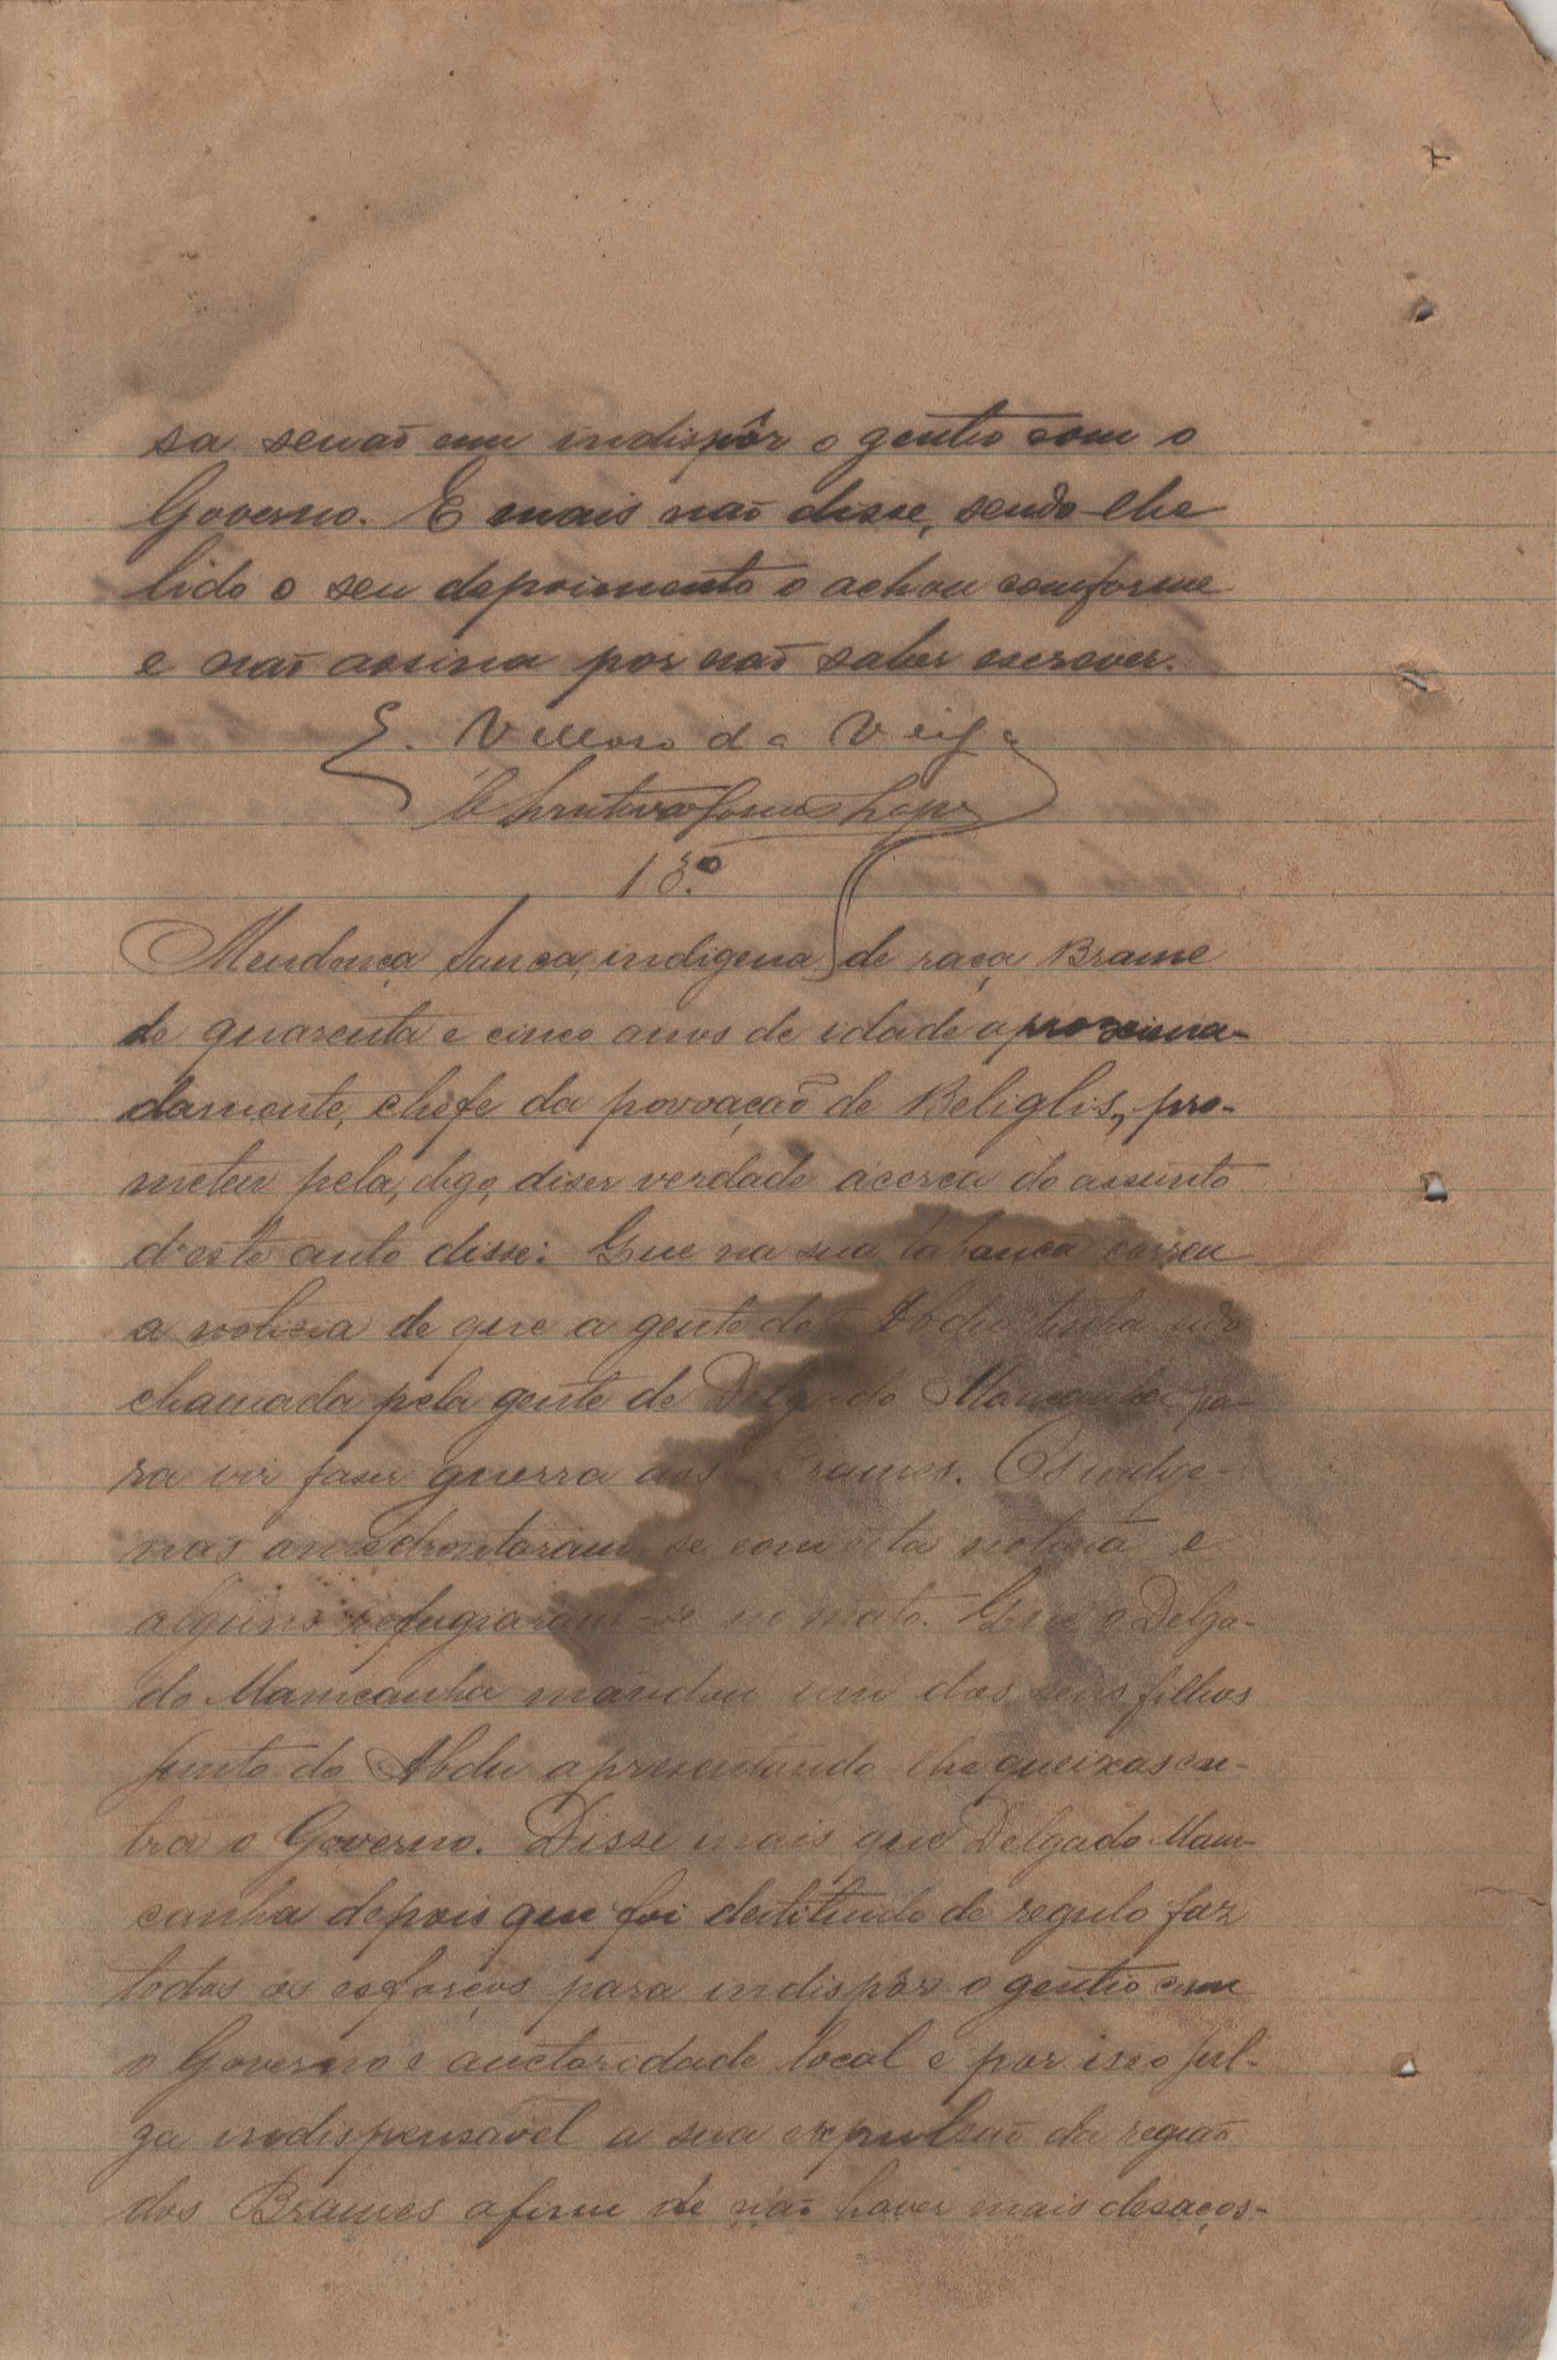 sa senão em indispôr o gentio com o
Governo. E mais não disse, sendo-lhe
lido o seu depoimento o achou comforme
e não assina por não saber escrever.
E. Velloso da Veiga
18.º
Mendonça Sanca, indigena de raça Brame
de quarenta e cinco anos de idade aproxima-
damente, chefe da povoação de Beliglis, pro-
meteu pela, digo, diser verdade ácerca do assunto
d'este auto disse: Que na sua tabanca correu
a noticia de que a gente do Abdu tinha sido
chamada pela gente de Delgado Mancanha pa-
ra vir faser guerra aos Brames. Os indige-
nas amedrontaram-se com esta noticia e
alguns refugiaram-se no mato. Que o Delga-
do Mamcanha mandou um dos seus filhos
junto do Abdu apresentando-lhe queixas con-
tra o Governo. Disse mais que Delgado Mam-
canha depois que foi destituido de regulo faz
todos os esforços para indispôr o gentio com
o Governo e auctoridade local e por isso jul-
ga indispensavel a sua expulsão da região
dos Brames afim de não haver mais desaços-